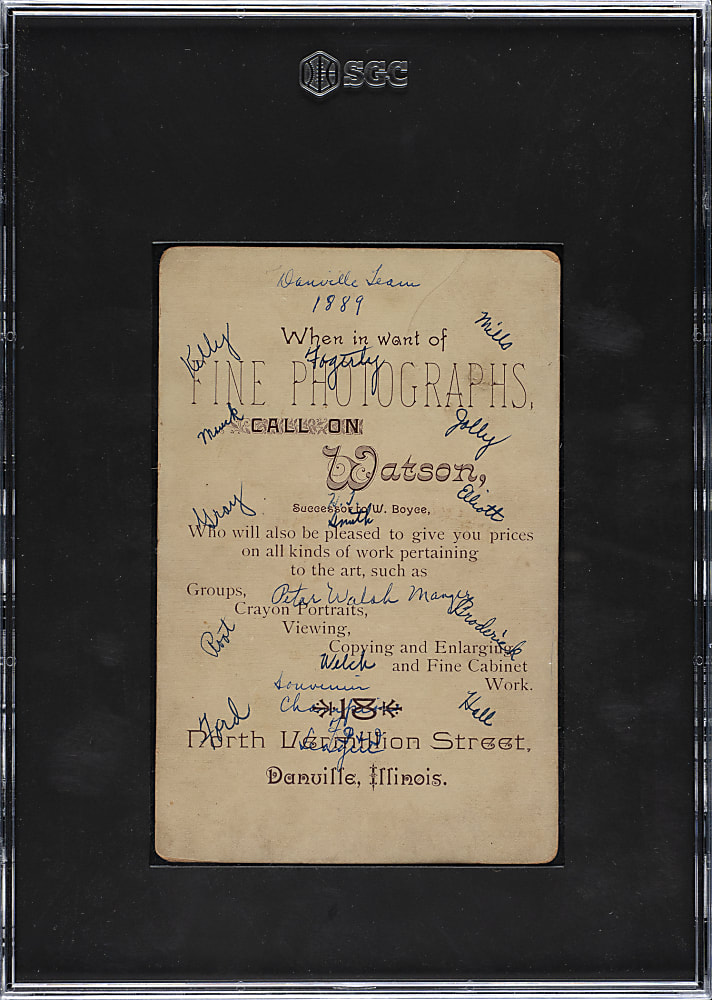 SGC
Danville Team
1889
Mills
When in want of
Kelly
Fogerty
FINE PHOTOGRAPHS,
CALL ON
Jolly
Watson,
Gray
Eliott
H J
Smith
Successor to W. Boyce,
Who will also be pleased to give you prices
on all kinds of work pertaining
to the art, such as
Groups,
Peter Walsh Manager
Crayon Portraits,
Broderick
Viewing,
Root
Copying and Enlarging
Welch
and Fine Cabinet
Work.
Souvenir
18
Hall
Ford
North Vermillion Street,
League
Danville, Illinois.